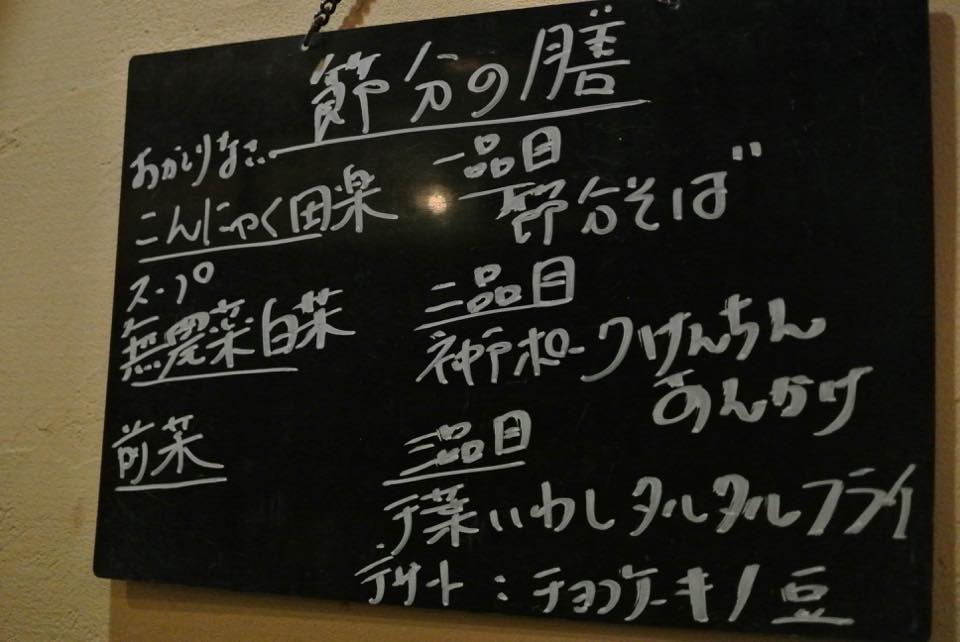 節分の膳
おかえりなさい
こんにゃく田楽
スープ
無農薬白菜
前菜
一品目
節分そば
二品目
神戸ポークけんちん
あんかけ
三品目
千葉いわしタルタルフライ
デザート：チョコケーキ/豆